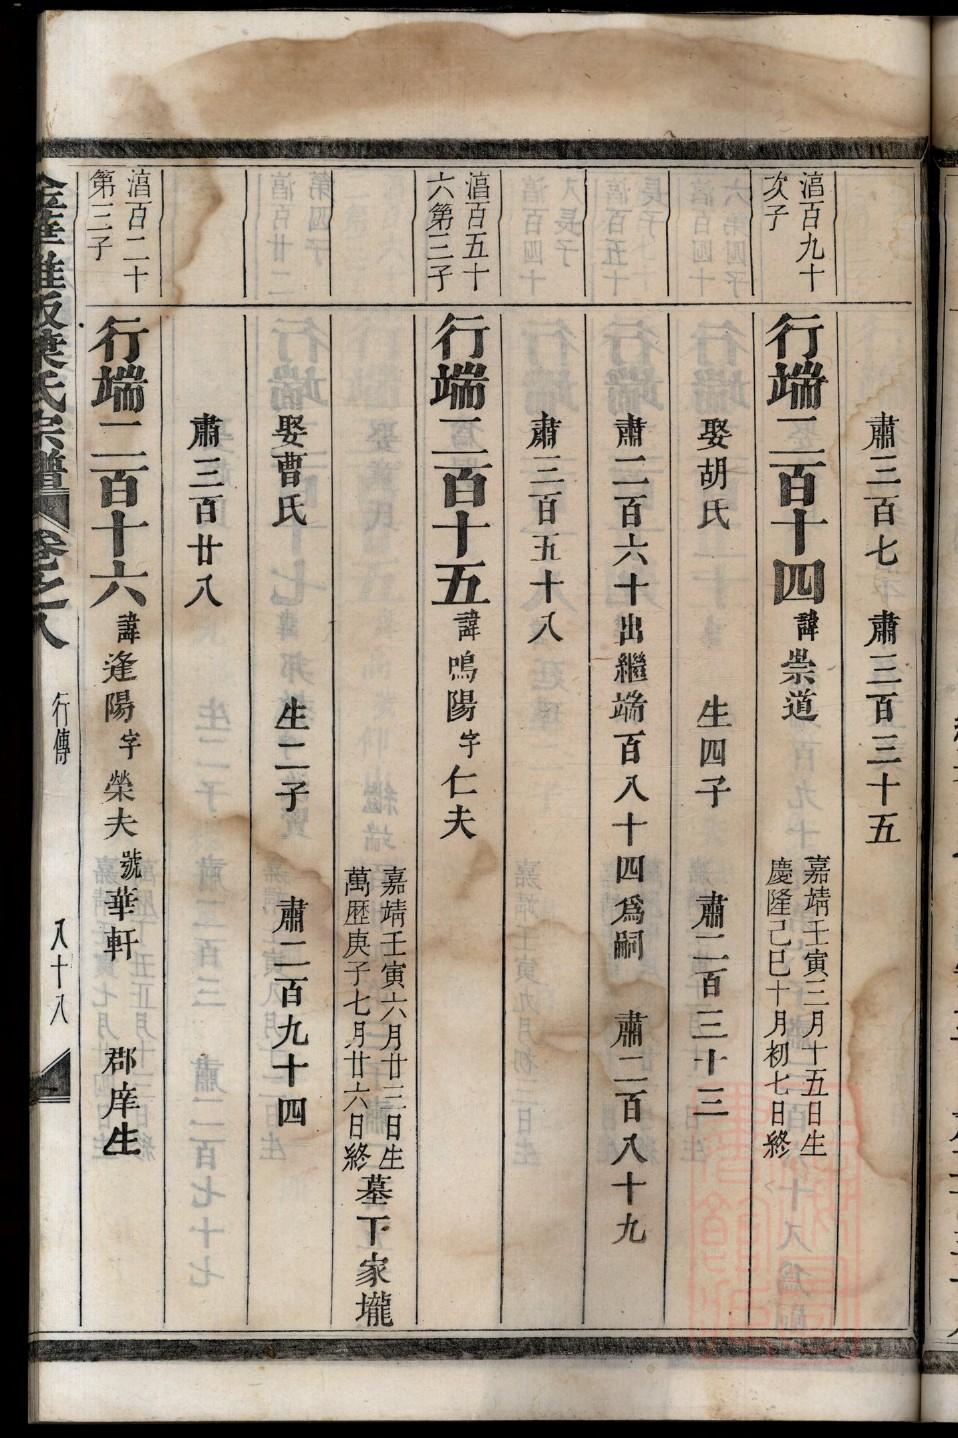 肅三百七　肅三百三十五
湻百九十
次子
行端二百十四諱崇道
嘉靖壬寅三月十五日生
慶隆己巳十月初七日終
娶胡氏　生四子　肅二百三十三
肅二百六十出繼端百八十四爲嗣　肅二百八十九
肅三百五十八
湻百五十
六第三子
行端二百十五諱鳴陽字仁夫
嘉靖壬寅六月廿三日生
萬歷庚子七月廿六日終
墓下家壠
娶曹氏　生二子　肅二百九十四
肅三百廿八
湻百二十
第三子
行端二百十六諱逢陽字榮夫號華軒　郡庠生
葉氏宗譜　卷之八　行傳　八十八